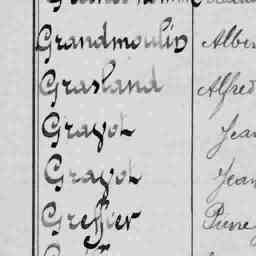 Grandmoulin Alber
Grasland Alfred
Gravot Jean
Gravot Jean
Greffier Pierre